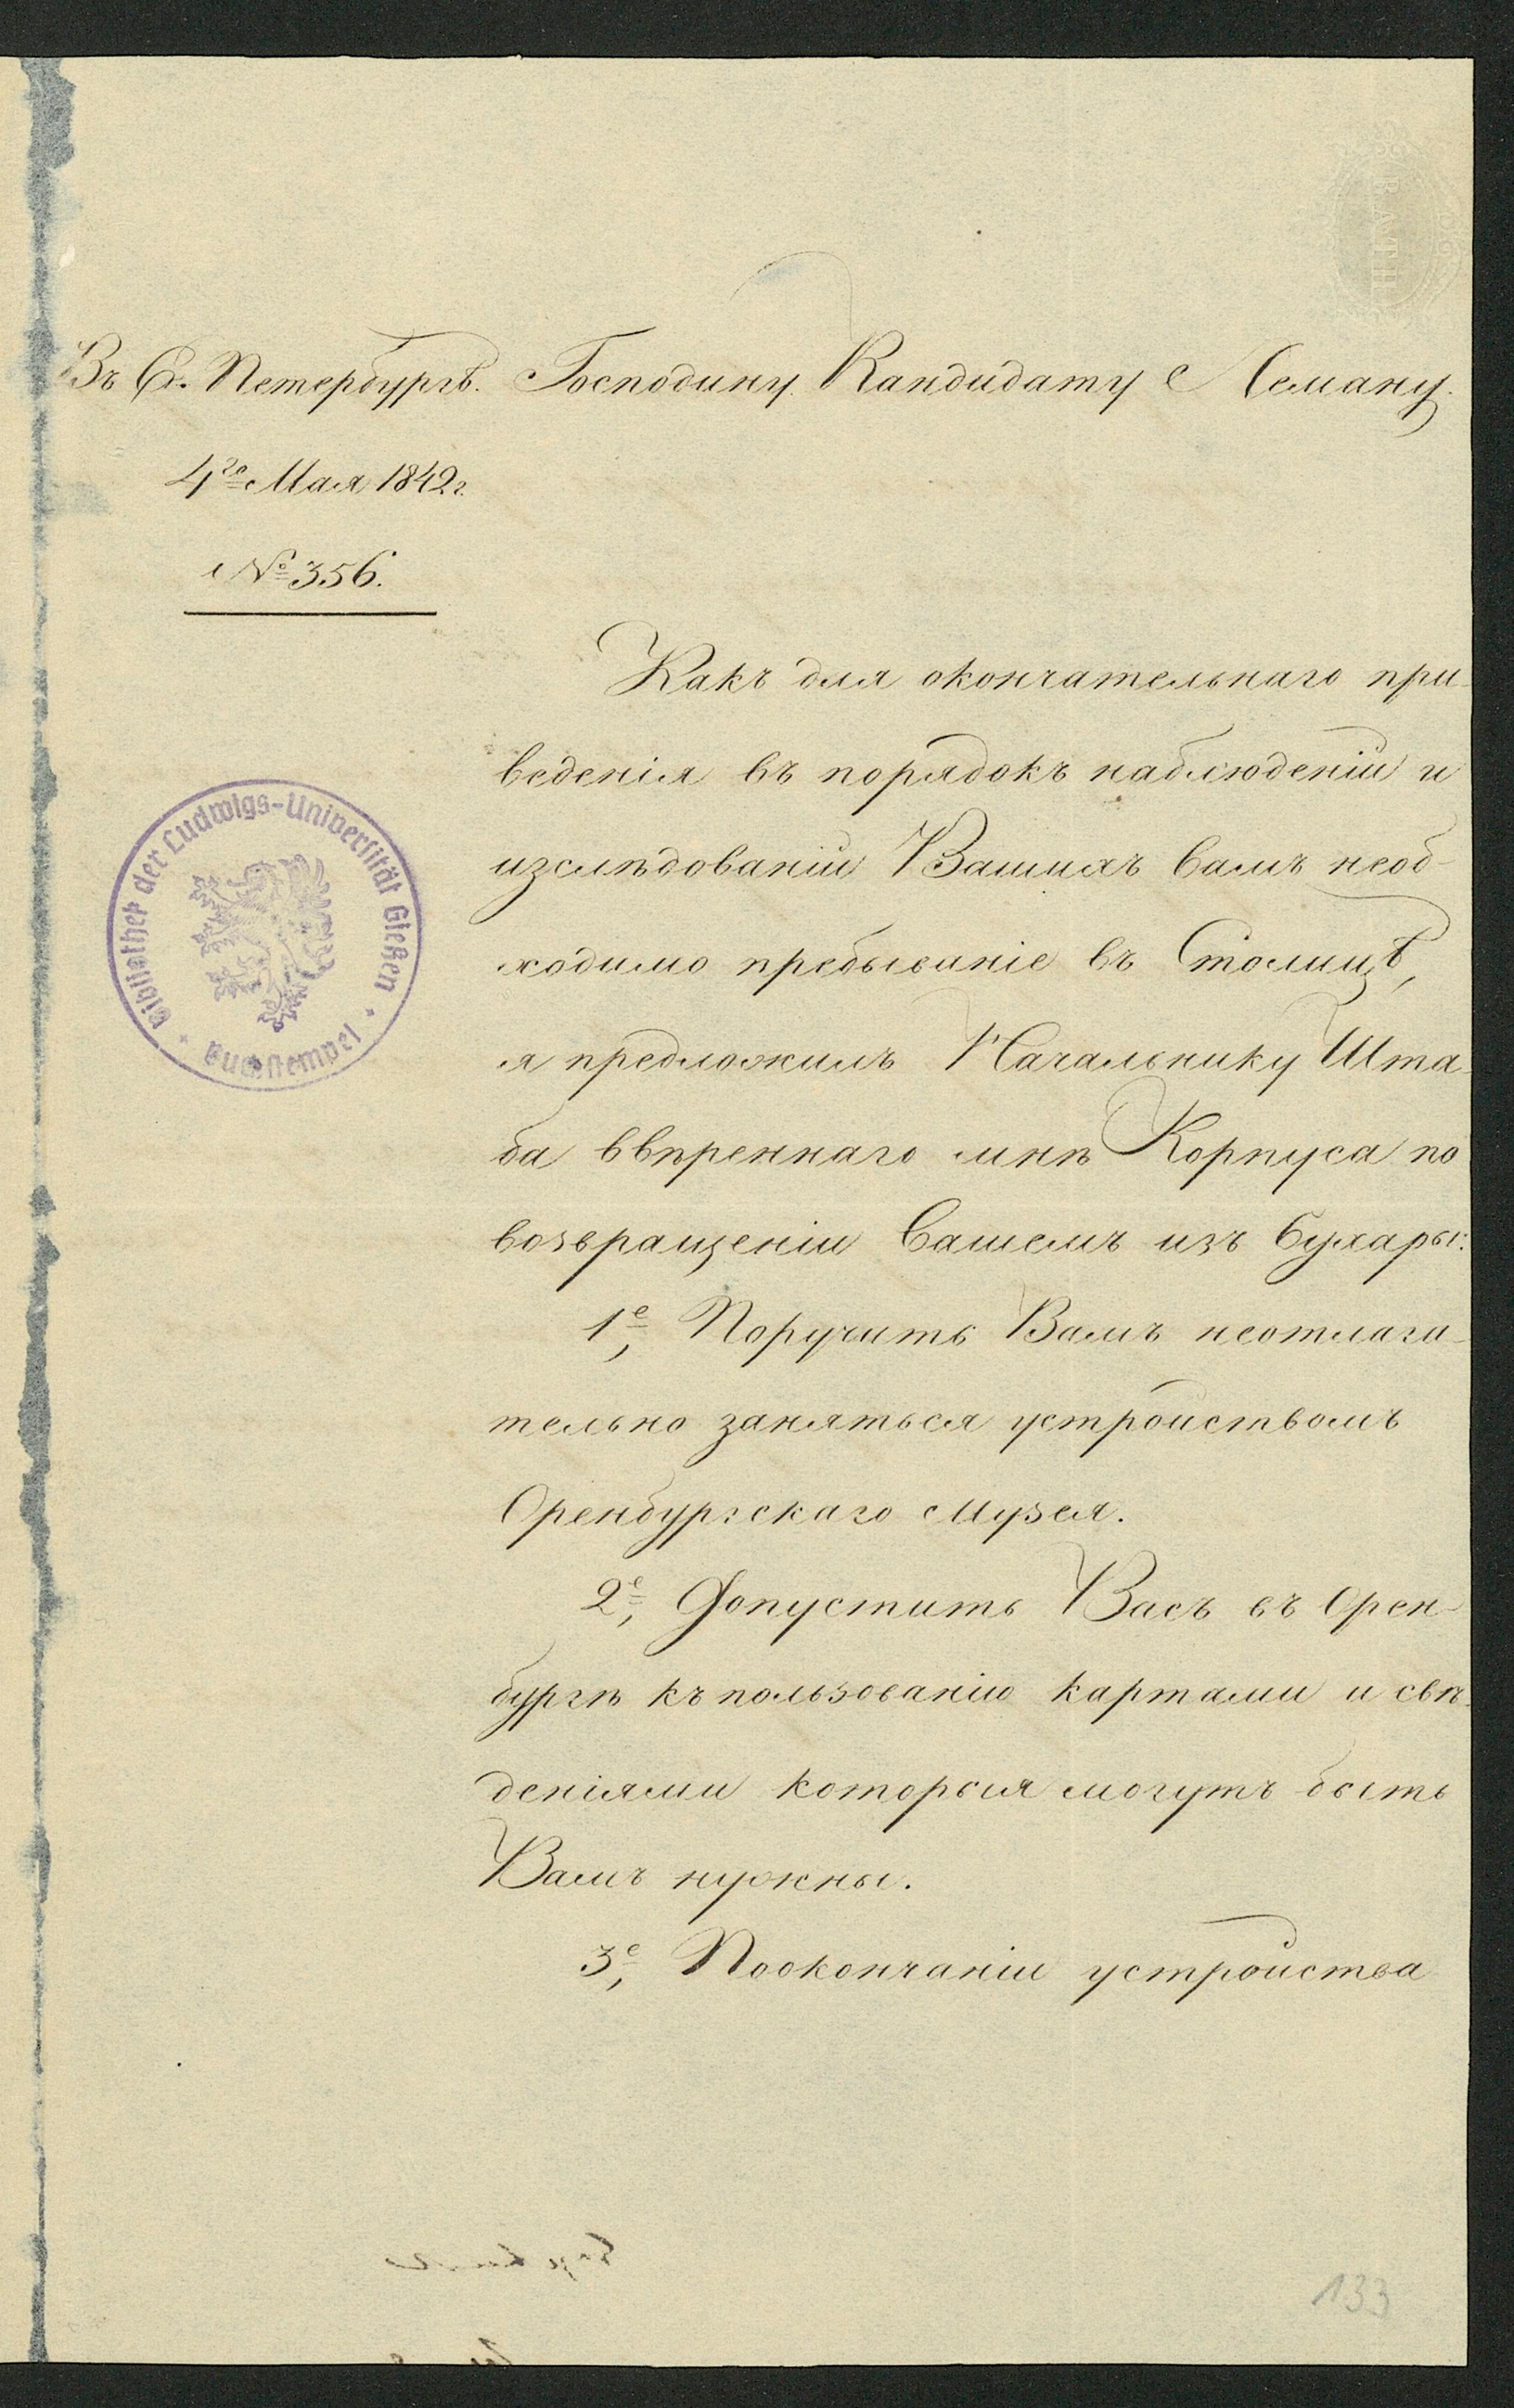 Въ С. Петербургѣ. Господину Кандидату Леману.
4го Мая 1842 г.
№ 356.
Какъ для окончательнаго при-
веденія въ порядокъ наблюденій и
изслѣдованій Вашихъ Вамъ необ-
ходимо пребываніе въ Столицѣ,
я предложилъ Начальнику Шта-
ба ввѣреннаго мнѣ Корпуса по
возвращеніи Вашемъ изъ Бухары:
1е, Поручить Вамъ неотлага-
тельно заняться устройствомъ
Оренбургскаго Музея.
2е, Допустить Васъ въ Орен-
бургѣ къ пользованію картами и свѣ-
деніями которыя могутъ быть
Вамъ нужны.
3е, По окончаніи устройства
Bibliothek der Ludwigs-Universität Gießen
Buchstempel
BATH
133